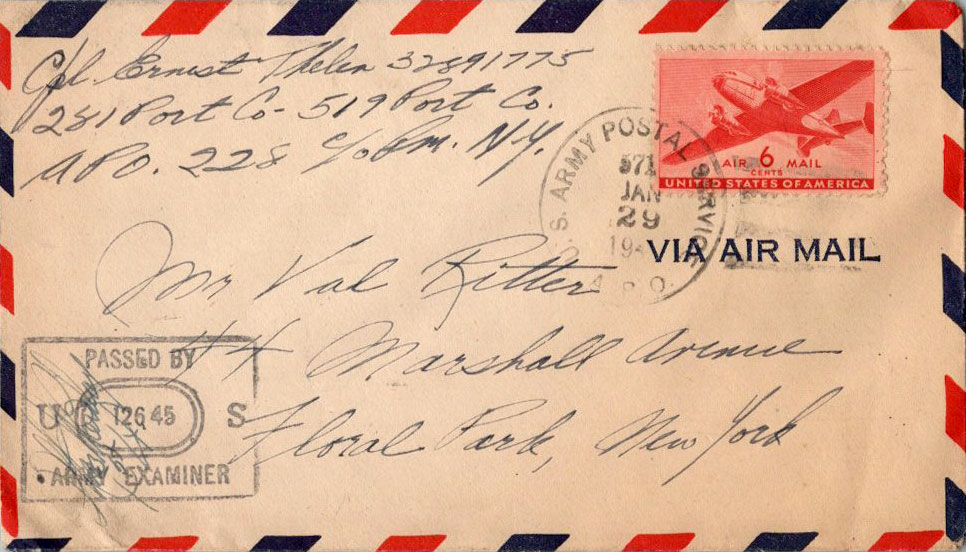 Cpl. Ernest Thelen 32891775
281 Port Co - 519 Port Co.
APO. 228 c/o Pm. N.Y.
U.S. ARMY POSTAL SERVICE
571
JAN
29
A.P.O.
AIR 6 MAIL
CENTS
UNITED STATES OF AMERICA
VIA AIR MAIL
Mr Val Ritter
44 Marshall Avenue
Floral Park, New York
PASSED BY
U 12645 S
ARMY EXAMINER